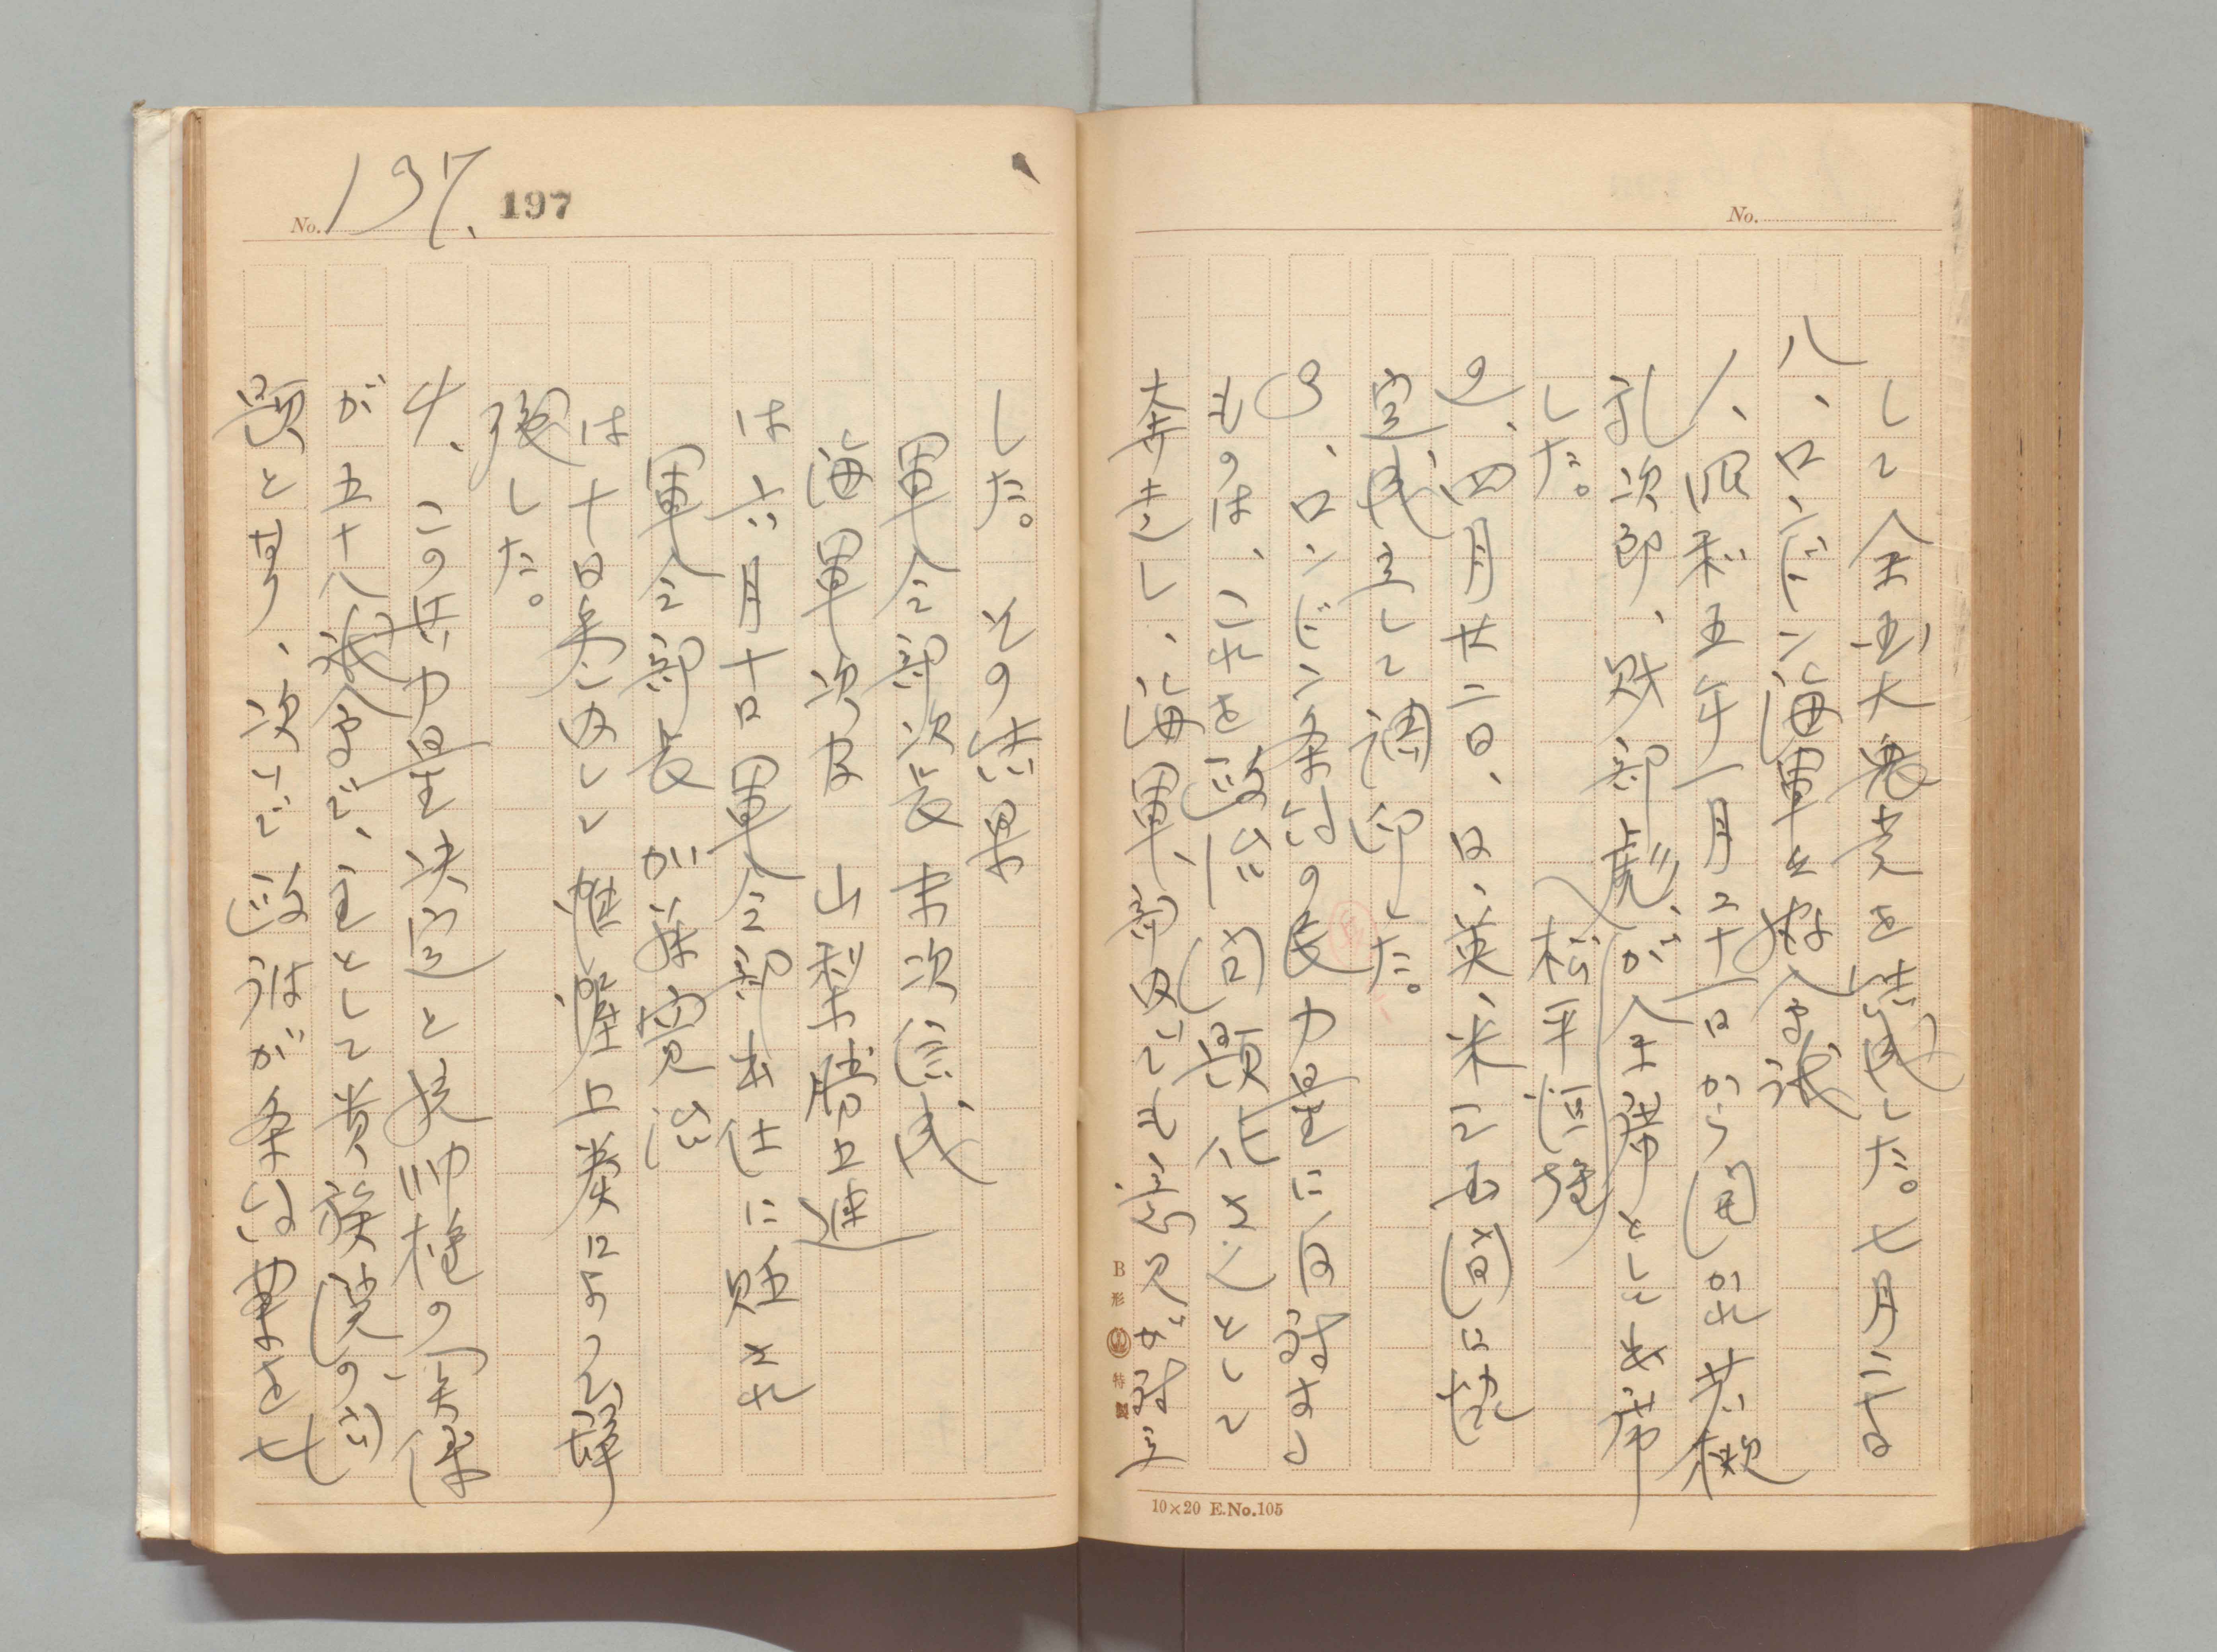 No.
して全国大衆党を結成した。七月二十日
八、ロンドン海軍々縮会議
1、昭和五年一月二十一日から開かれ若槻
礼次郎、財部彪、が全権として出席
した。 松平恒雄
2、四月廿二日、日、英、米三国間に協
定成立して調印した。
3、ロンドン条約の兵力量に反対する
ものは、これを政治問題化さんとして
奔走し、海軍部内でも意見が対立
10×20 E.No.105
B形 特製
No. 197. 197
した。その結果
軍令部次長 末次信成
海軍次官 山梨勝之進
は六月十日軍令部出仕に貶され
軍令部長 加藤寛治
は十日参内して帷幄上奏によつて辞
職した。
4、この兵力量決定と統帥権の関係
が五十八議会で、主として貴族院の問
題となり、次いで政府が条約案を七